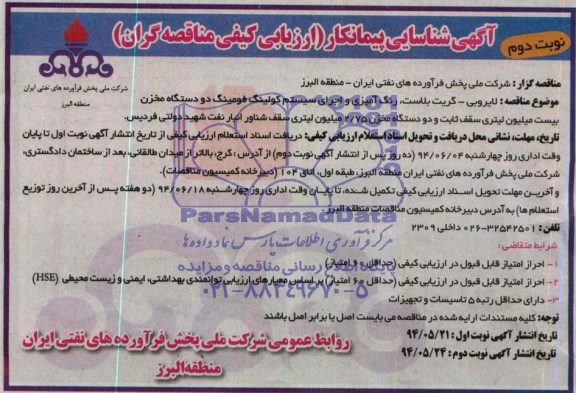 آگهی شناسایی پیمانکار (ارزیابی کیفی مناقصه گران)
نوبت دوم
شرکت ملی پخش فرآورده های نفتی ایران
منطقه البرز
مناقصه گزار : شرکت ملی پخش فرآورده های نفتی ایران - منطقه البرز
موضوع مناقصه : لایروبی - گریت بلاست، رنگ آمیزی و اجرای سیستم کولینگ فومینگ دو دستگاه مخزن
بیست میلیون لیتری سقف ثابت و دو دستگاه مخزن ۲/۷۵ میلیون لیتری سقف شناور انبار نفت شهید دولتی فردیس.
تاریخ، مهلت، نشانی محل دریافت و تحویل اسناد استعلام ارزیابی کیفی: دریافت اسناد استعلام ارزیابی کیفی از تاریخ انتشار آگهی نوبت اول تا پایان
وقت اداری روز چهارشنبه ۹۴/۰۶/۰۴ (ده روز پس از انتشار آگهی نوبت دوم) از آدرس : کرج، بالاتر از میدان طالقانی، بعد از ساختمان دادگستری،
شرکت ملی پخش فرآورده های نفتی ایران منطقه البرز، طبقه اول، اتاق ۱۰۴ (دبیرخانه کمیسیون مناقصات).
و آخرین مهلت تحویل اسناد ارزیابی کیفی تکمیل شده، تا پایان وقت اداری روز چهارشنبه ۹۴/۰۶/۱۸ (دو هفته پس از آخرین روز توزیع
استعلام ها) به آدرس دبیرخانه کمیسیون مناقصات منطقه البرز.
تلفن : ۳۲۵۴۲۵۰۱-۰۲۶ داخلی ۲۳۰۹
شرایط متقاضی :
۱- احراز امتیاز قابل قبول در ارزیابی کیفی (حداقل ۶۰ امتیاز)
۲- احراز امتیاز قابل قبول در ارزیابی کیفی (حداقل ۶۰ امتیاز) بر اساس معیارهای ارزیابی توانمندی بهداشتی، ایمنی و زیست محیطی (HSE)
۳- دارای حداقل رتبه ۵ تاسیسات و تجهیزات
توجه: کلیه مستندات ارایه شده در مناقصه می بایست اصل یا برابر اصل باشند
تاریخ انتشار آگهی نوبت اول : ۹۴/۰۵/۲۱
تاریخ انتشار آگهی نوبت دوم : ۹۴/۰۵/۲۴
روابط عمومی شرکت ملی پخش فرآورده های نفتی ایران
منطقه البرز
ParsNamadData
مرکز فرآوری اطلاعات پارس نماد داده ها
پایگاه اطلاع رسانی مناقصه و مزایده
۰۲۱-۸۸۳۴۹۶۷۰-۵